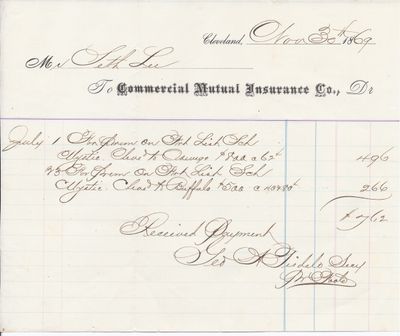 Cleveland, Nov 30th 1869
Mr Seth Lee
To Commercial Mutual Insurance Co., Dr
July 1 For Prem on Frt List Sch
Mystic. Chao to Oswego $800 a 62c 496
23 For Prem on Frt List Sch
Mystic Chao to Buffalo $500 a 266
$ 7,62
Received Payment
Geo A Tisdale Secy